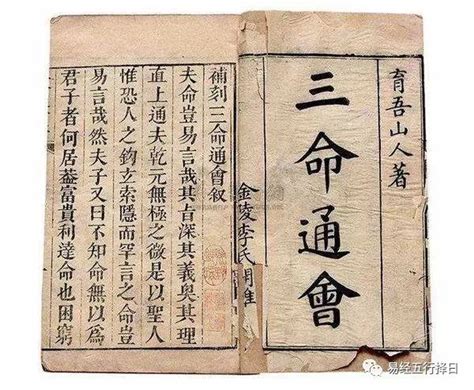 育吾山人著
三命通會
金陵李氏
補刻三命通會叙
夫命豈易言哉其旨深其義奧其理
直上通夫乾元無極之微是以聖人
惟恐人之鈎玄索隱而罕言之命豈
易言哉然夫子又曰不知命無以為
君子者何居葢富貴利達命也困窮
易经五行择日